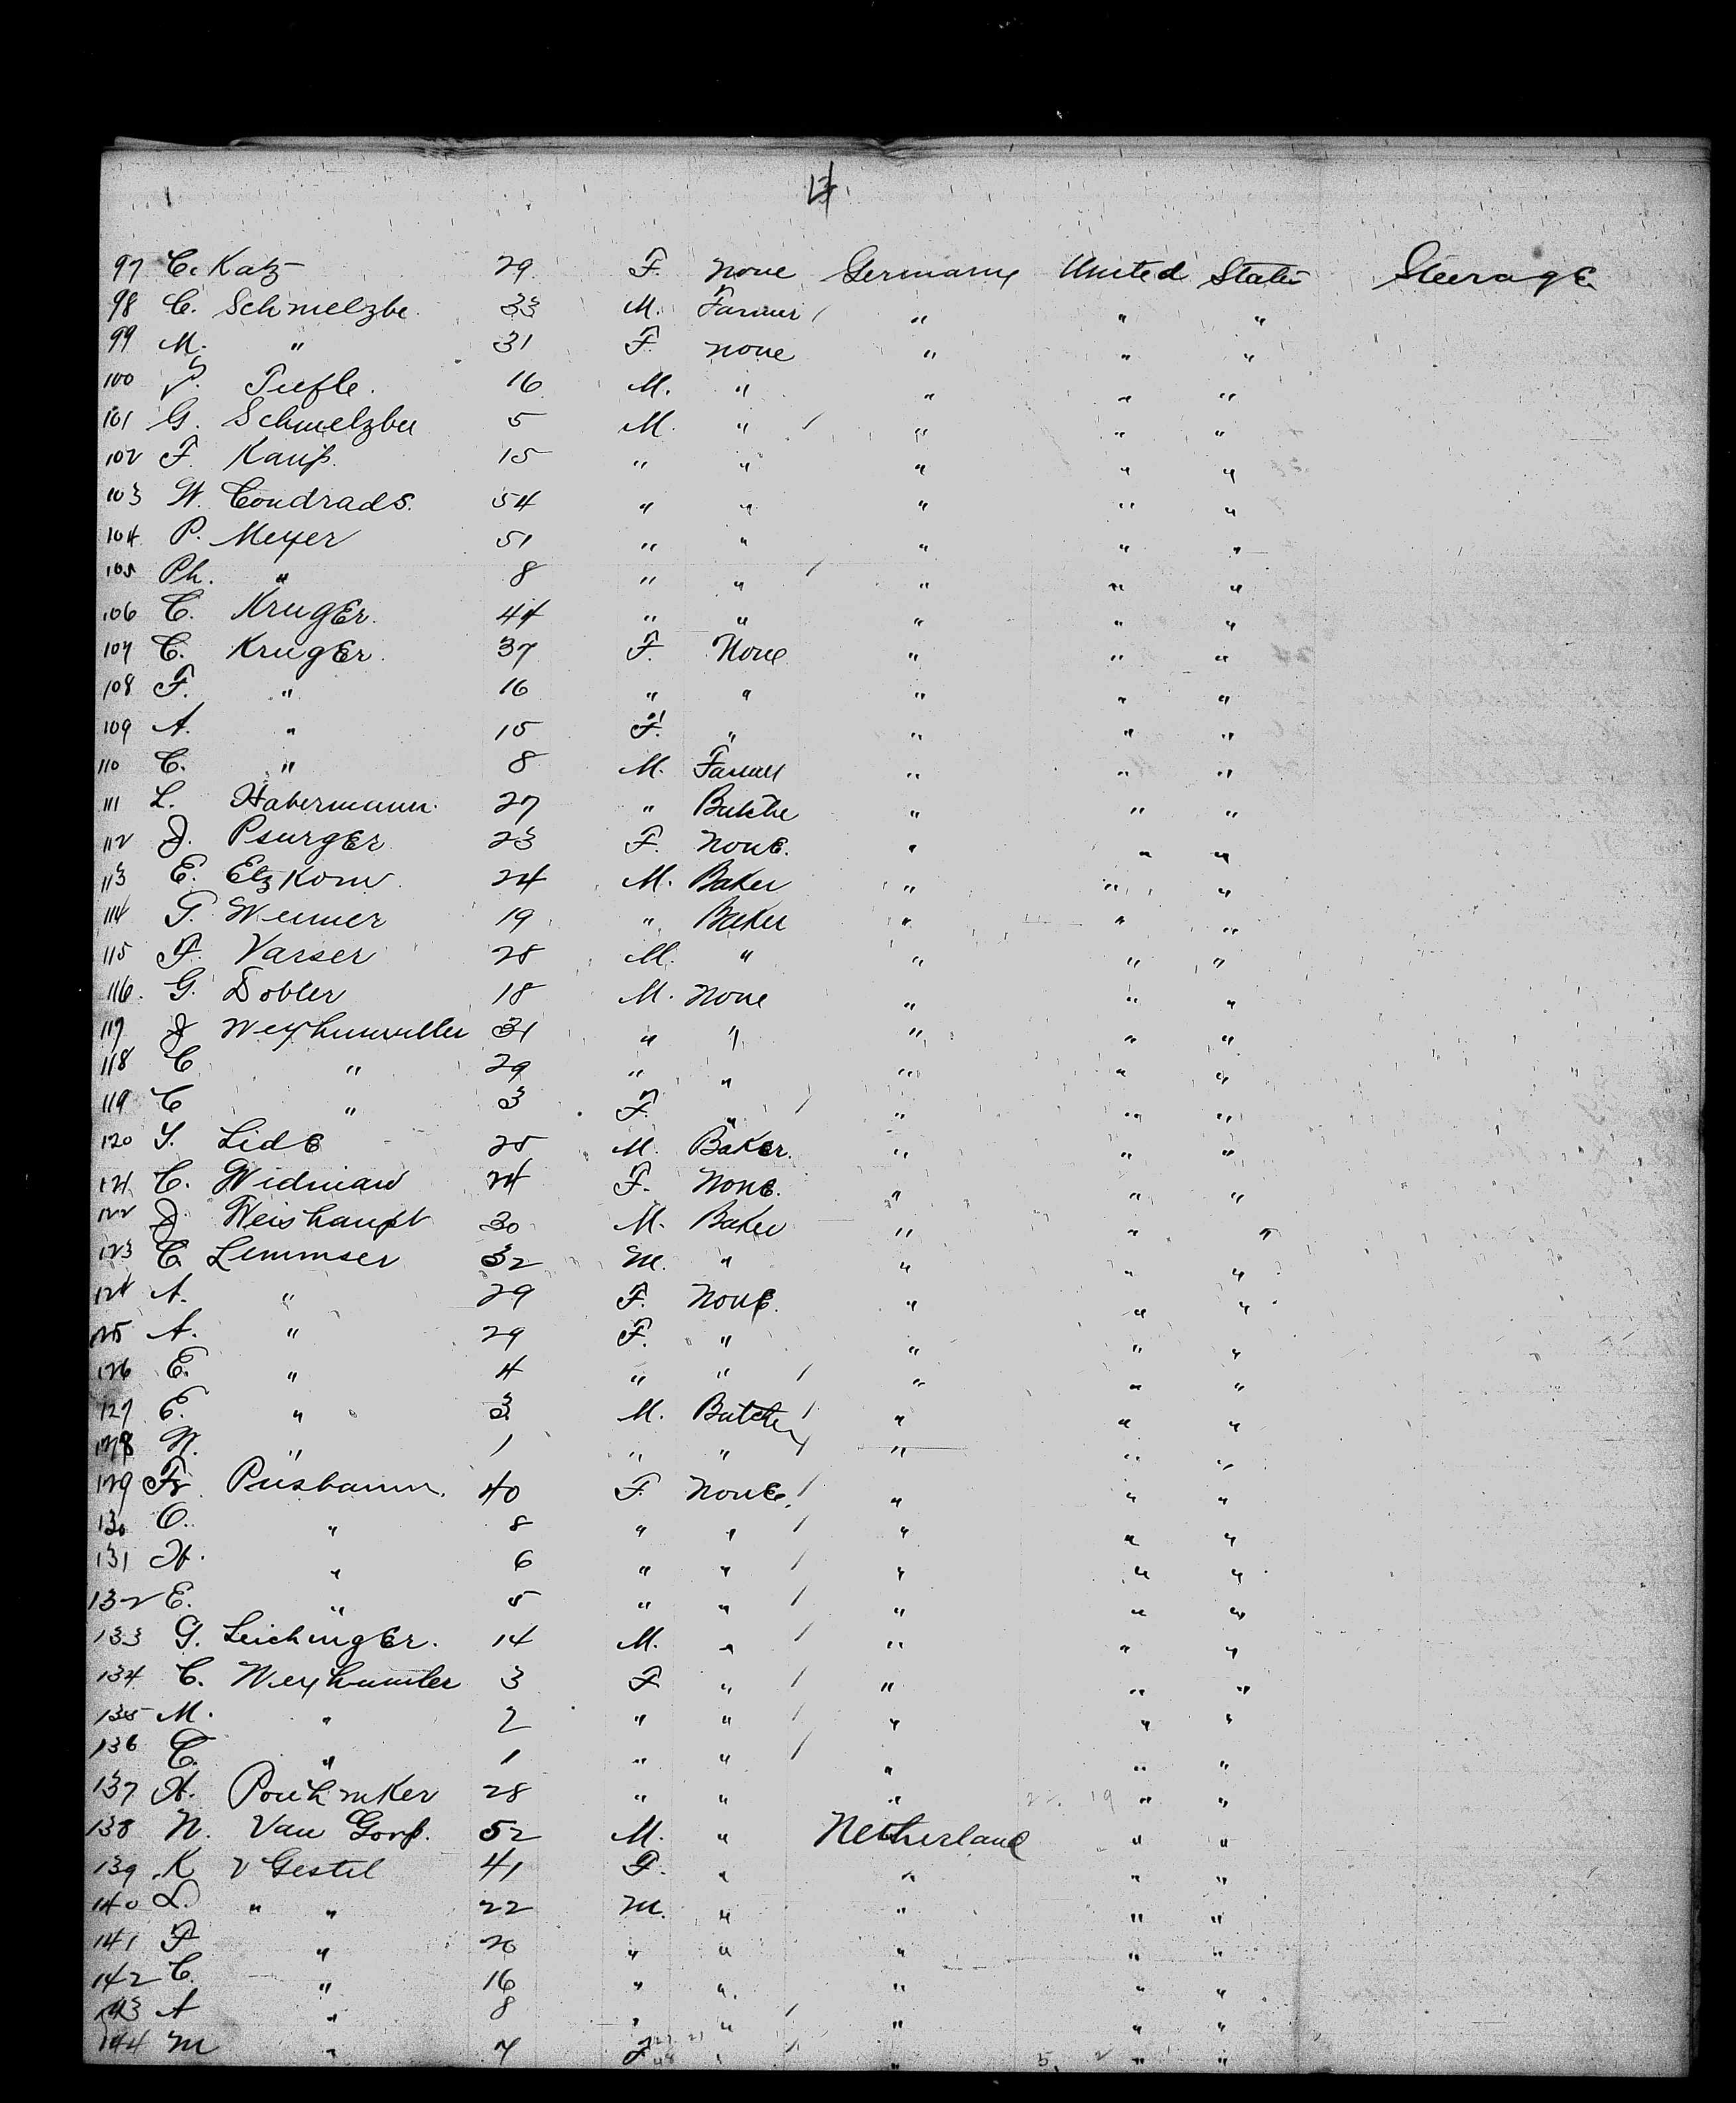 13
97 C. Katz 29 F. None Germany United States Steerage
98 C. Schmelzbe 33 M. Farmer / " " "
99 M. " 31 F. none " " "
100 J. Tiefle. 16 M. " " " "
101 G. Schmelzbu 5 M. " / " " "
102 F. Kauß. 15 " " " " "
103 W. Condrads. 54 " " " " "
104 P. Meyer 51 " " " " "
105 Ph. " 8 " " / " " "
106 C. Kruger. 44 " " " " "
107 C. Kruger. 37 F. None " " "
108 F. " 16 " " " " "
109 A. " 15 F. " " " "
110 C. " 8 M. " " "
111 L. Habermann. 27 " Butche " " "
112 J. Psurger 23 F. None. " " "
113 E. Etzkorn. 24 M. Baker " " "
114 T. Weimer 19 " Baker " " "
115 F. Varser 28 M. " " " "
116. G. Dobler 18 M. None " " "
117 J 31 " " " " "
118 C " 29 " " " " "
119 C " 3 F. " / " " "
120 Y. Lide 25 M. Baker. " " "
121 C. Widman 24 F. None. " " "
122 J. Weishaupt 30 M. Baker " " "
123 C. Lemmser 32 M. " " " "
124 A. " 29 F. None. " " "
125 A. " 29 F. " " " "
126 E. " 4 " " / " " "
127 E. " 3 M. Butche / " " "
128 W. " 1 " " / " " "
129 Fr. 40 F None. / " " "
130 O. " 8 " " / " " "
131 H. " 6 " " / " " "
132 E. " 5 " " / " " "
133 G. Leichinger. 14 M. " / " " "
134 C. 3 F " / " " "
135 M. " 2 " " / " " "
136 C. " 1 " " / " " "
137 H. 28 " " " " "
138 N. Van Gorp. 52 M. " Netherland " "
139 K v Gestel 41 F. " " " "
140 L. " " 22 M. " " " "
141 F " 20 " " " " "
142 C. " 16 " " " " "
143 A " 8 " " / " " "
144 M " 7 F " / " " "